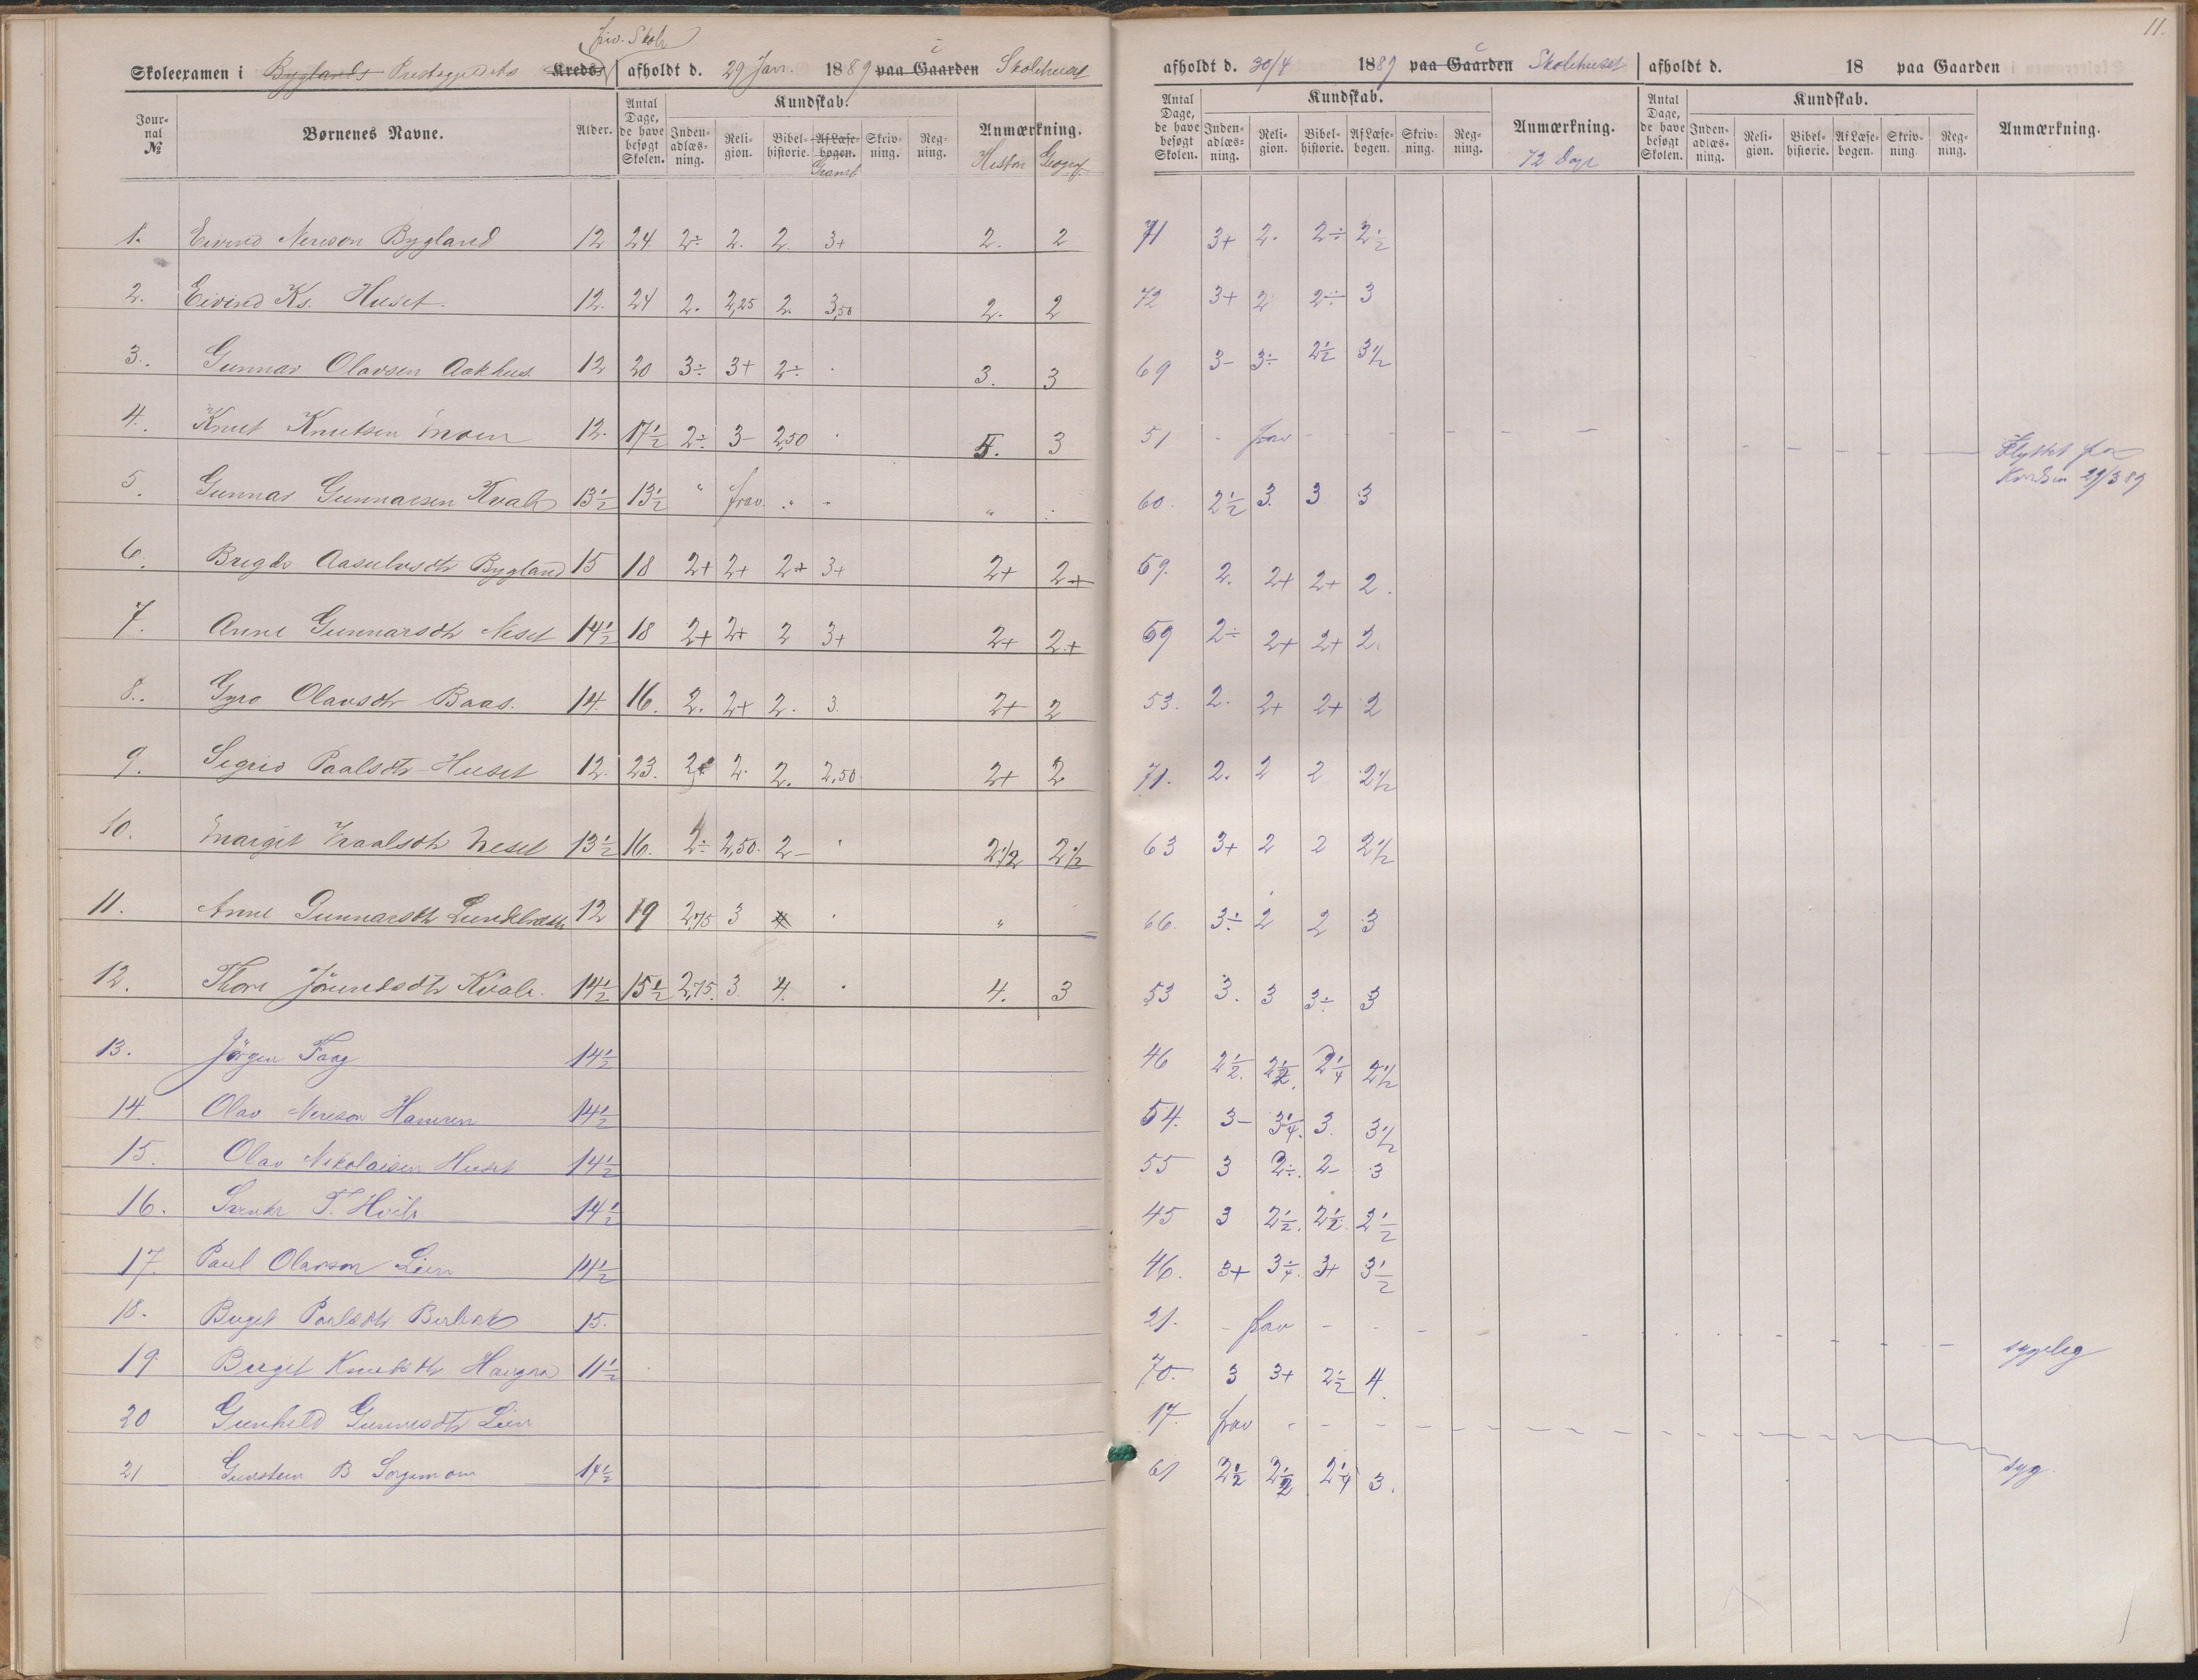 11.
priv. Skole
Skoleexamen i Byglands Prestegjeldets Kreds afholdt d. 29 Jan. 1889 paa Gaarden i Skolehuset
afholdt d. 30/4 1889 paa Gaarden i Skolehuset
afholdt d. 18 paa Gaarden
Journal № Børnenes Navne. Alder. Antal Dage, de have besøgt Skolen. Kundskab. Indenadlæsning. Religion. Bibelhistorie. Af Læsebogen. Skrivning. Regning. Anmærkning. Histor Geogr.
Antal Dage, de have besøgt Skolen. Kundskab. Indenadlæsning. Religion. Bibelhistorie. Af Læsebogen. Skrivning. Regning. Anmærkning. 72 Dage
Antal Dage, de have besøgt Skolen. Kundskab. Indenadlæsning. Religion. Bibelhistorie. Af Læsebogen. Skrivning. Regning. Anmærkning.
1. Eivind Nerison Bygland 12 24 2÷ 2. 2. 3+ 2. 2 71 3+ 2. 2÷ 2½
2. Eivind Ks. Huset. 12. 24 2. 2,25 2. 3,50 2. 2 72 3+ 2 2÷ 3
3. Gunnar Olavsen Aakhus 12 20 3÷ 3+ 2÷ 3. 3 69 3- 3÷ 2½ 3½
4. Knut Knutsen Moen 12. 17½ 2÷ 3- 2,50 3 51 - frav - - - - -
Flyttet fra Kredsen 29/3 89
5. Gunnar Gunnarsen Kvale 13½ 13½ " frav. " " " 60. 2½ 3. 3 3
6. Birgit Aasulvsdtr Bygland 15 18 2+ 2+ 2+ 3+ 2+ 2+ 59. 2. 2+ 2+ 2.
7. Anne Gunnarsdtr Neset 14½ 18 2+ 2+ 2 3+ 2+ 2+ 59 2÷ 2+ 2+ 2.
8. Gyro Olavsdtr Baas. 14. 16. 2. 2+ 2. 3. 2+ 2 53. 2. 2+ 2+ 2
9. Sigrid Paalsdtr Huset 12. 23. 2 2. 2. 2,50 2+ 2 71. 2. 2 2 2½
10. Margit Paalsdtr Neset 13½ 16. 2÷ 2,50. 2- 2½ 2½ 63 3+ 2 2 2½
11. Anne Gunnarsdtr 12 19 2,75 3 " 66. 3÷ 2 2 3
12. Thore Jöundsdtr Kvale. 14½ 15½ 2,75. 3. 4. 4. 3 53 3. 3 3÷ 3
13. Jörgen Faag 14½ 46 2½. 2½. 2¼ 2½
14. Olav Nerison Hamren 14½ 54. 3- 3¼. 3. 3½
15. Olav Nikolaisen Huset 14½ 55 3 2÷. 2- 3
16. T. 14½ 45 3 2½. 2½. 2½
17. Paul Olavson Lien 14½ 46. 3+ 3¼. 3+ 3½
18. Birgit Paulsdtr 15. 21. - frav - - - - sygelig
19. Birget Knudsdtr 11½ 70. 3 3+ 2½ 4.
20 Gunhild Gunnarsdtr Lien 17. frav - - - - syg.
21 Gunstein B 14½ 61 2½ 2½ 2¼ 3.